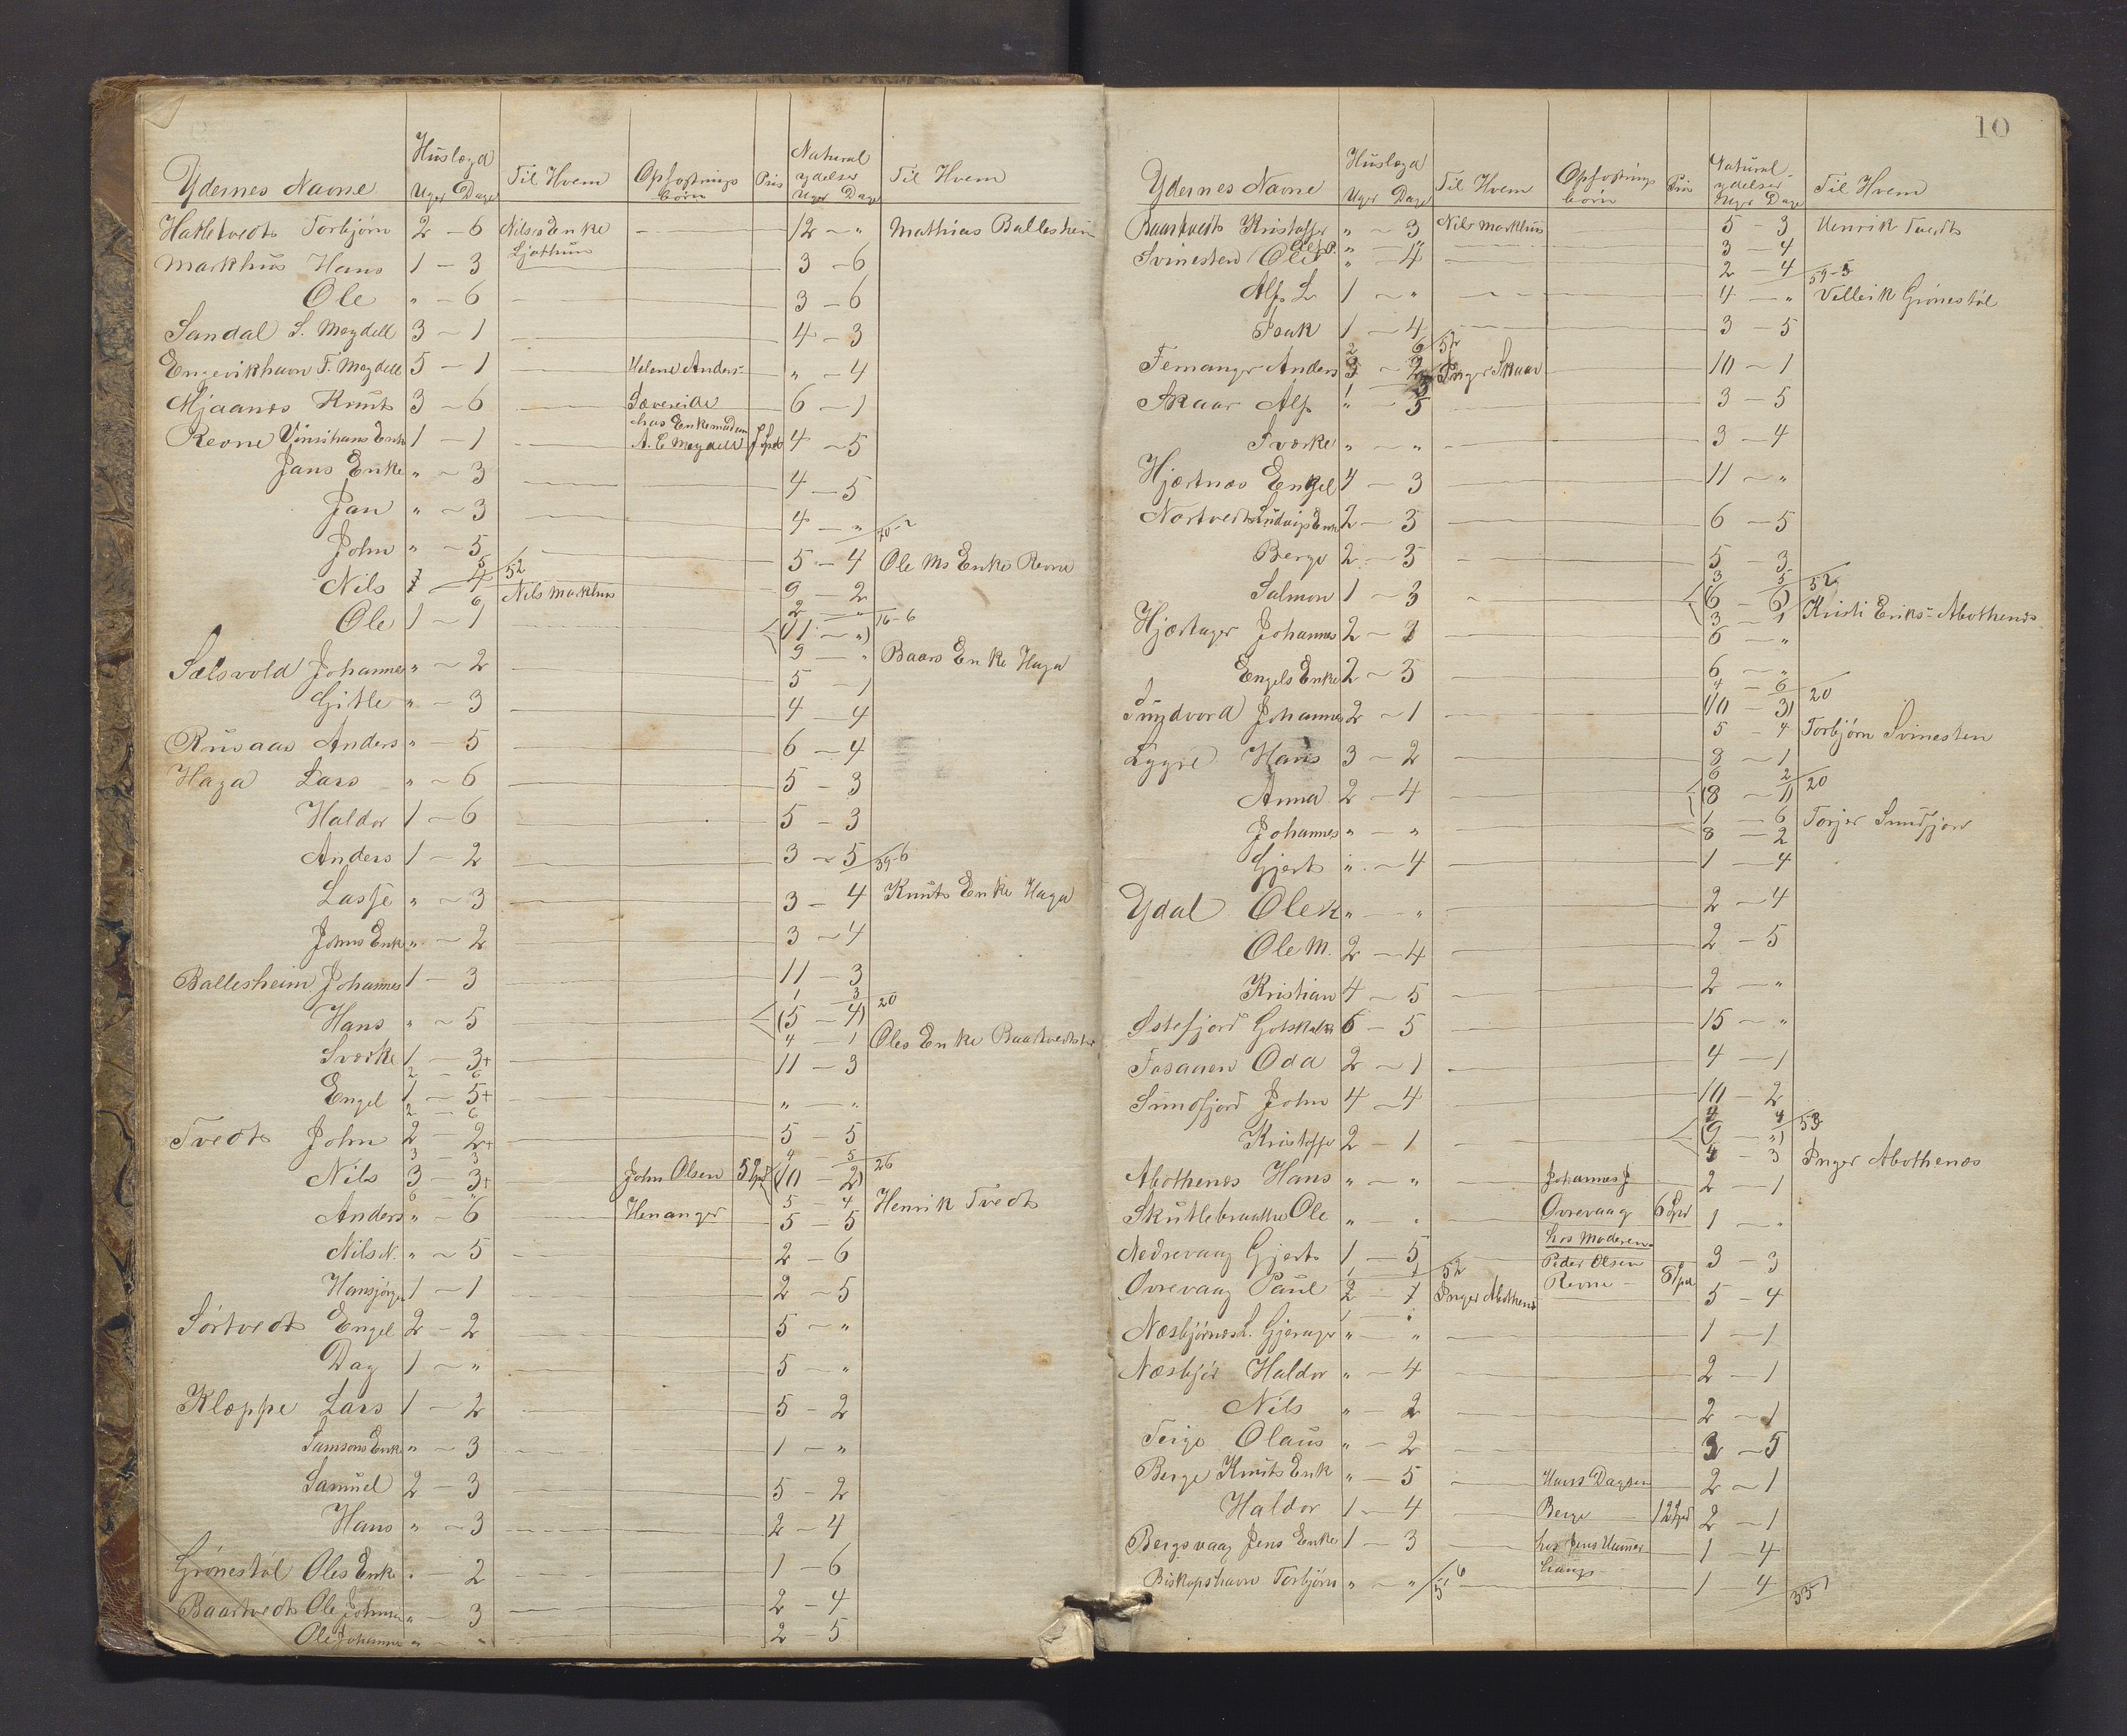 Huslægd Natural
Ydernes Navne Uger Dage Til Hvem Opfostrings børn Pris ydelser Uger Dage Til Hvem
Hatletvedt Torbjørn 2 – 6 Nilses Enke — 12 – „ Mathias Ballesheim
Ljothun
Markhus Hans 1 – 3 3 – 6
Ole „ – 6 3 – 6
Sandal S. Meydell 3 – 1 4 – 3
Engevikhavn F. Meydell 5 – 1 Helene Anders- „ – 4
Mjaanes Knut 3 – 6 Sævereide 6 – 1
hos Enkemadam
Revne Enk 1 – 1 A. E Meydell Spd 4 – 5
Jans Enke „ – 3 4 – 5
Jan „ – 3 4 – „ 20-2
John „ – 5 5 – 4 Ole Ms Enke Revne
5 52
Nils 1 – 4 Nils Markhus 9 – 2
6 2 – „ 16-6
Ole 1 – 1 (11 – „)
9 – „ Baars Enke Haga
Sælsvold Johannes „ – 2 5 – 1
Gitle „ – 3 4 – 4
Rusaas Anders „ – 5 6 – 4
Haga Lars „ – 6 5 – 3
Haldor 1 – 6 5 – 3
Anders 1 – 2 3 – 5 39-6
Lasse „ – 3 3 – 4 Knuts Enke Haga
Johns Enk „ – 2 3 – 4
Ballesheim Johannes 1 – 3 11 – 3
1 – 3 20
Hans „ – 5 (5 – 4)
4 – 1 Oles Enke
Sverke 1 – 3+ 11 – 3
2 – 6
Engel 1 – 5+ „ – „
2 – 6
Tvedt John 2 – 2+ 5 – 5
3 – 3 4 – 5 26
Nils 3 – 3+ John Olsen 5 Spd (10 – 2)
6 – „ 5 – 4 Henrik Tvedt
Anders „ – 6 Henanger 5 – 5
Nils N. „ – 5 2 – 6
Hansjørgen 1 – 1 2 – 5
Sørtvedt Engel 2 – 2 5 – „
Dag 1 – „ 5 – „
Kloppe Lars 1 – 2 5 – 2
Samsons Enke „ – 3 1 – „
Samuel 2 – 3 5 – 2
Hans „ – 3 2 – 4
Grønestøl Oles Enk „ – 2 1 – 6
Baartvedt Ole „ – 3 2 – 4
Ole Johannes „ – „ 2 – 5
10
Huslægd Natural-
Ydernes Navne Uger Dage Til Hvem Opfostrings børn Pris ydelser Uger Dage Til Hvem
Baartvedt Kristoffer „ – 3 Nils Markhus 5 – 3 Henrik Tvedt
„ – „ 3 – 4
Svinesten Ole „ – 4 2 – 4 59-3
Alf L 1 – „ 4 – „ Villeik Grønestøl
Isak 1 – 4 3 – 5
2 6 52
Femanger Anders 3 – 2 Inger Skaar 10 – 1
1 – 3
Skaar Alf „ – 5 3 – 5
Sverke „ – „ 3 – 4
Hjertnæs Engel 4 – 3 11 – „
Nortvedt Ludvigs Enke 2 – 3 6 – 5
Berge 2 – 3 5 – 3
3 5 52
Salmon 1 – 3 (6 – 6)
3 – 1 Kristi Eriks- Abothenes
Hjertager Johannes 2 – 1 6 – „
Engels Enke 2 – 3 6 – „
4 – 6 20
Sundvord Johannes 2 – 1 (10 – 3)
5 – 4 Torbjørn Svinesten
Lygre Hans 3 – 2 8 – 1
6 2 20
Anna 2 – 4 (8 – 1)
1 – 6 Torjer Sundfjord
Johannes „ – „ 8 – 2
Gjert „ – 4 1 – 4
Ydal Ole K „ – „ 2 – 4
Ole M. 2 – 4 2 – 5
Kristian 4 – 5 2 – „
Østefjord Gotskalk 6 – 5 15 – „
Tasaaen Oda 2 – 1 4 – 1
Sundfjord John 4 – 4 10 – 2
4 4 53
Kristoffer 2 – 1 (9 – „)
4 – 3 Inger Abothenes
Abothenes Hans „ – „ Johannes J 2 – 1
Skutlebraatte Ole „ – „ Øvrevaag 6 Spd 1 – „
hos Moderen
Nedrevaag Gjert 1 – 5 Peder Olsen 3 – 3
1 1 52
Øvrevaag Paul 2 – 1 Inger Abothenes Revne 8 Spd 5 – 4
1 – „
Næsbjørnes L. Gjerager „ – „ 1 – 1
Næsbjør Haldor „ – 4 2 – 1
Nils „ – 2 2 – 1
Teige Olaus „ – 2 3 – 5
Berge Knuts Enk „ – 5 Hans Dagsen 2 – 1
Haldor 1 – 4 Berge 12 Spd 2 – 1
Bergsvaag Jens Enke 1 – 3 hos Jens 1 – 4
Biskopshavn Torbjørn „ – „ 51-6 1 4 335-1